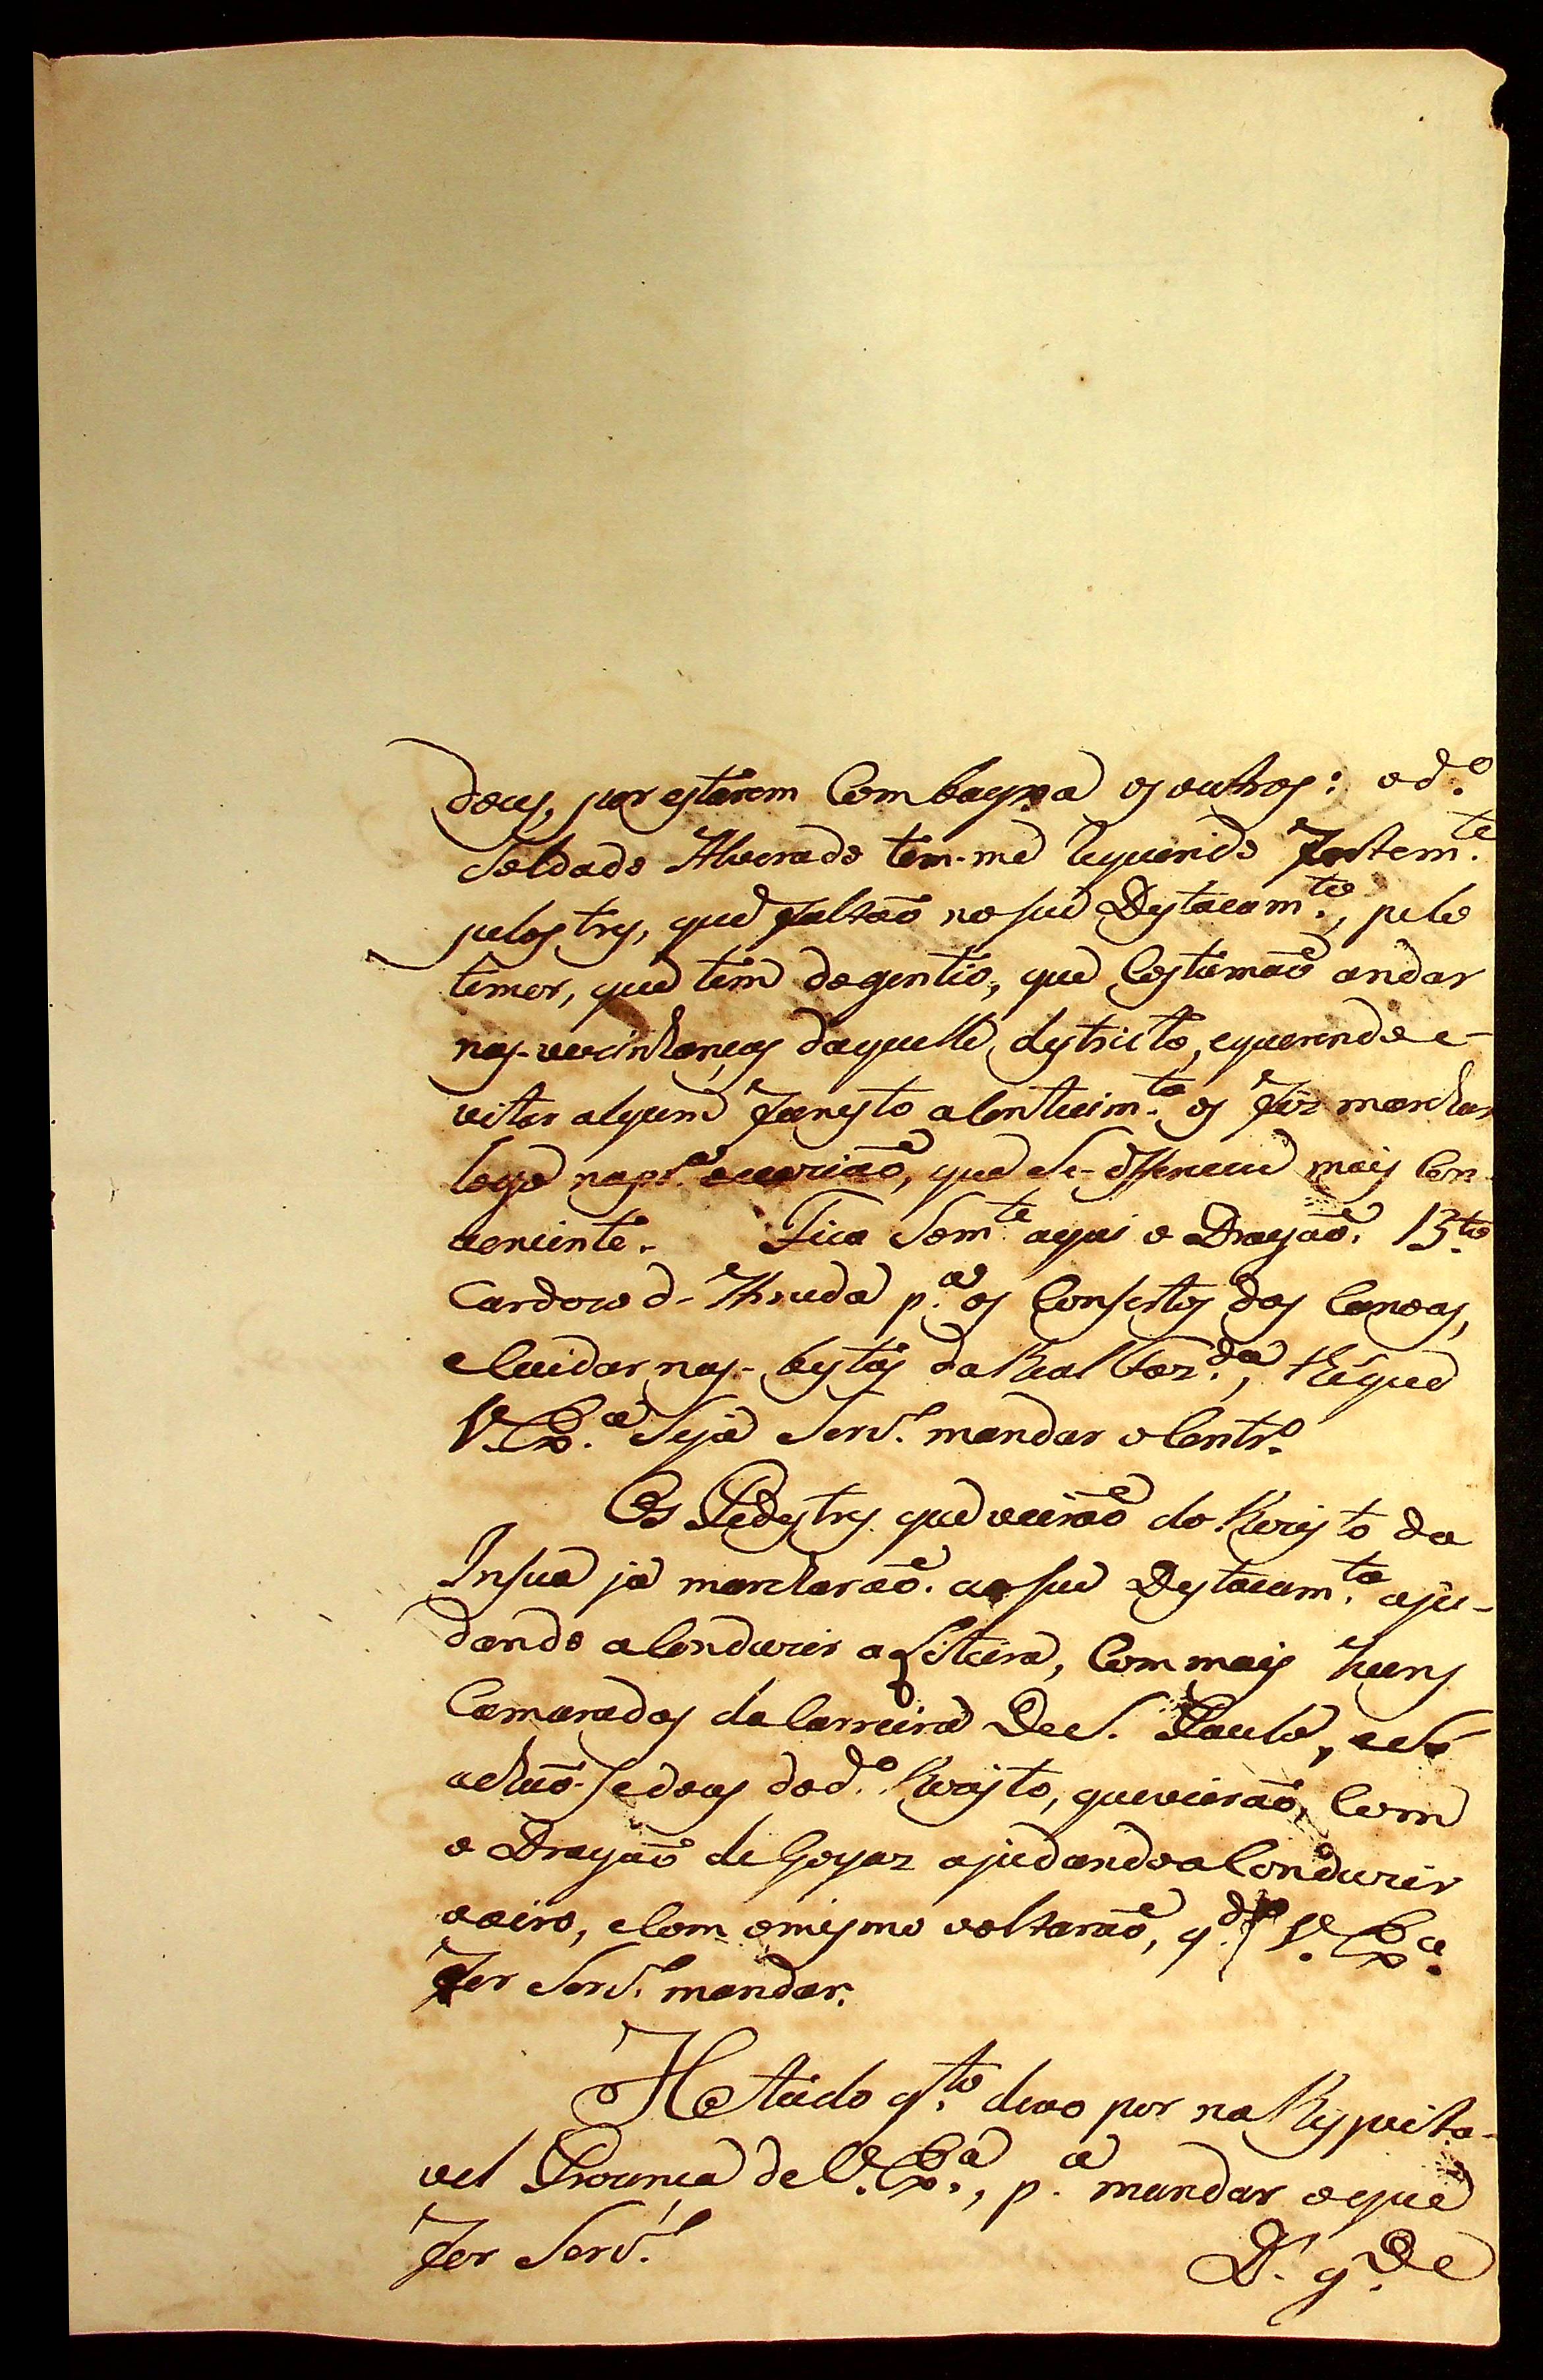 dous, por estarem Com bayxa os outros: o d.º
Soldado Alvorado tem-me requerido fortem.te
pelos tres, que faltaõ no seu Destacam.to, pelo
temor, que tem do gentio, que Costumaõ andar
nas vezinhanças daquelle destricto, e querendo e-
vitar algum funesto aContecim.to os fiz marchar
logo na pr.ª occaziaõ, que se-offereceu mais Con-
veniente. Fica Som.te aqui o Dragaõ B.to
Cardozo d'Arruda p.ª os Consertos das Canoas,
e Cuidar nas bestas da Real Faz.da, athe que
V. Ex.ª Seja Serv.º mandar o Contr.º
Os Pedestres que vieraõ do Rezisto da
Insua já marcharaõ ao seu Destacam.to aju-
dando a Conduzir a Liteira, Com mais huns
Camaradas da Carreira de S. Paulo, e só
achaõ-se dous do d.º Rezisto, que vieraõ Com
o Dragaõ de Goyaz ajudando a Conduzir
o oiro, e Com o mesmo voltaraõ, q.do V. Ex.ª
for Serv.º mandar.
He tudo q.to devo por na Respeita-
vel Prezença de V. Ex.ª, p.ª mandar o que
for Serv.º
D.s g.de